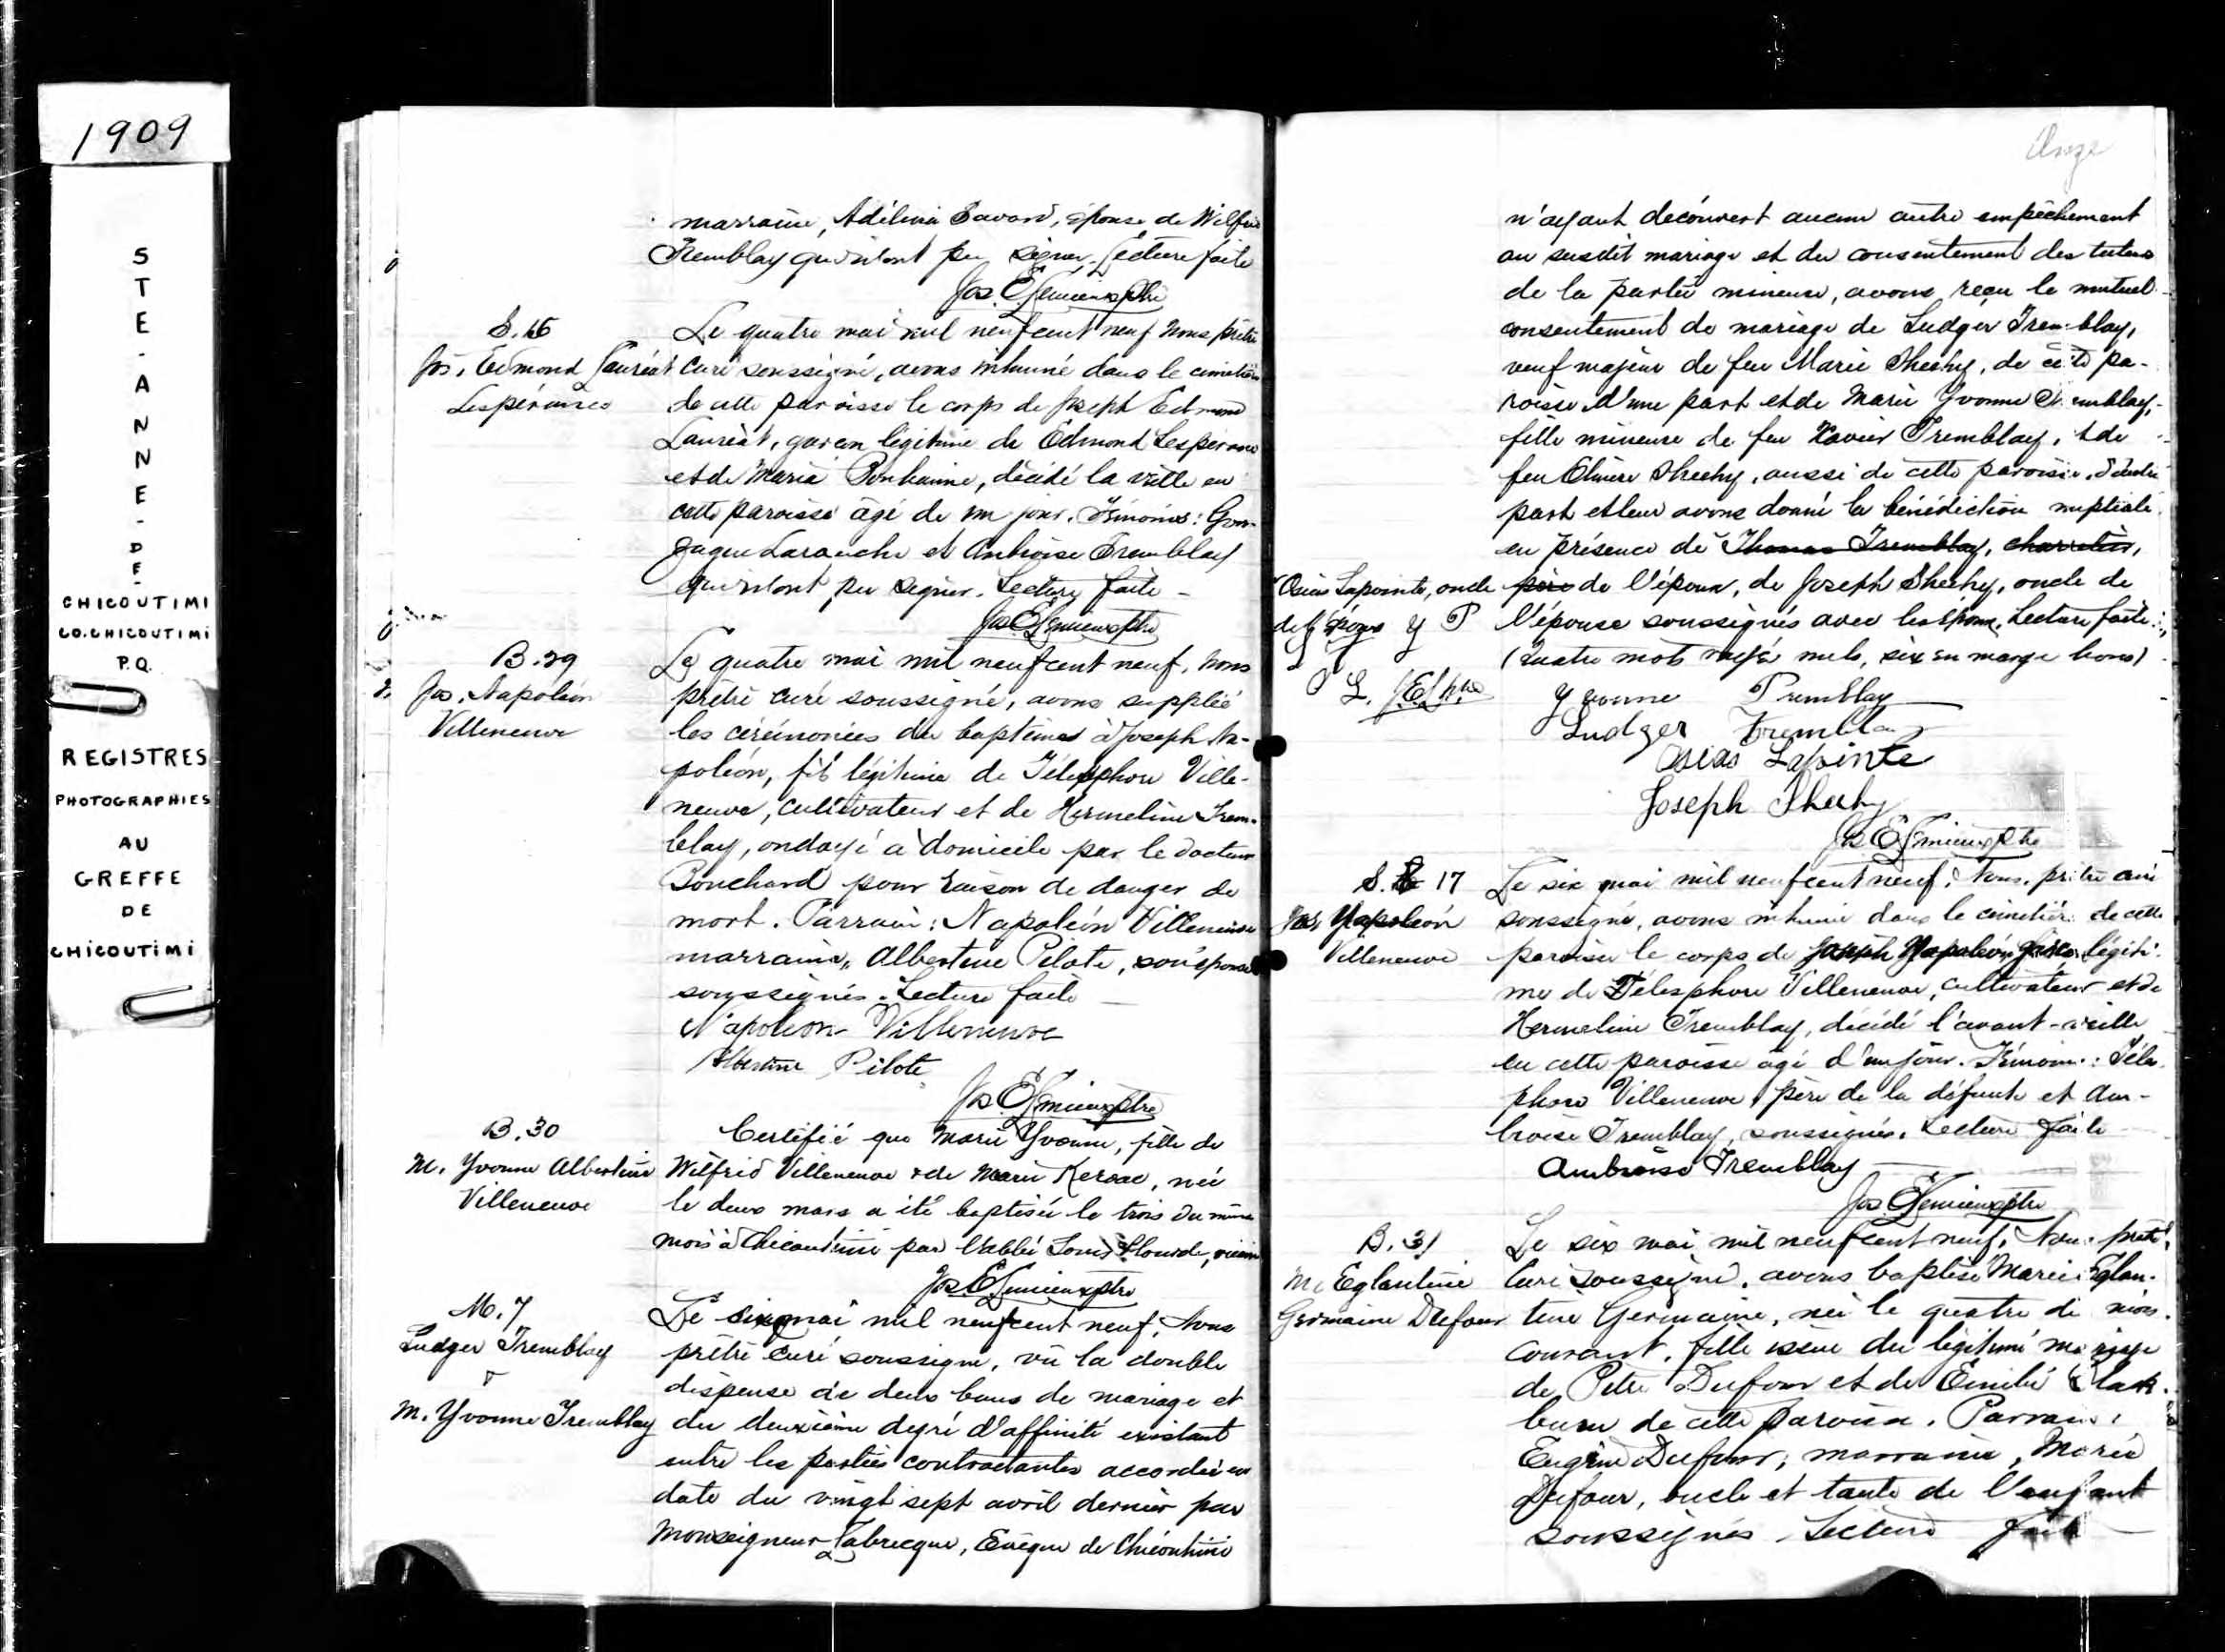 1909
STE-ANNE-DE-
CHICOUTIMI
CO. CHICOUTIMI
P.Q.
REGISTRES
PHOTOGRAPHIES
AU
GREFFE
DE
CHICOUTIMI
marraine, Adélina Savard, épouse de Wilfrid
Tremblay qui n'ont pu signer. Lecture faite
Jos. E Lemieux ptre
S. 16
Jos. Edmond Lauréat
Lespérance
Le quatre mai mil neuf cent neuf nous prêtre
curé soussigné, avons inhumé dans le cimetière
de cette paroisse le corps de Joseph Edmond
Lauréat, garçon légitime de Edmond Lespérance
et de Maria, décédé la veille en
cette paroisse âgé de un jour. Témoins: Gon-
zague Larouche et Ambroise Tremblay
qui n'ont pu signer. Lecture faite -
Jos E Lemieux ptre
B. 29
Jos. Napoléon
Villeneuve
Le quatre mai mil neuf cent neuf, nous
prêtre curé soussigné, avons supplié
les cérémonies du baptême à Joseph Na-
poléon, fils légitime de Télesphore Ville-
neuve, cultivateur et de Hermeline Trem-
blay, ondoyé à domicile par le docteur
Bouchard pour raison de danger de
mort. Parrain: Napoléon Villeneuve
marraine, Albertine Pilote, son épouse
soussignés. Lecture faite
Napoleon Villeneuve
Albertine Pilote
Jos E Lemieux ptre
B. 30
M. Yvonne Albertine
Villeneuve
Certifié que Marie Yvonne, fille de
Wilfrid Villeneuve & de Marie Keroac, née
le deux mars a été baptisée le trois du même
mois à Chicoutimi par l'abbé Louis, vicaire
Jos E Lemieux ptre
M. 7
Ludger Tremblay
&
M. Yvonne Tremblay
Le six mai mil neuf cent neuf, Nous
prêtre curé soussigné, vu la double
dispense de deux bans de mariage et
du deuxième degré d'affinité existant
entre les parties contractantes accordée en
date du vingt sept avril dernier par
Monseigneur Labrecque, Evêque de Chicoutimi
Onze
n'ayant découvert aucun autre empêchement
au susdit mariage et du consentement des tuteurs
de la partie mineure, avons reçu le mutuel
consentement de mariage de Ludger Tremblay,
veuf majeur de feu Marie Sheehy, de cette pa-
roisse d'une part et de Marie Yvonne Tremblay,
fille mineure de feu Xavier Tremblay, & de
feu Sheehy, aussi de cette paroisse, d'autre
part et leur avons donné la bénédiction nuptiale
en présence de Thomas Tremblay, charretier,
Osias Lapointe, oncle
de l'époux Y T
L T
O L. J.E.L. ptre
père de l'époux, de Joseph Sheehy, oncle de
l'épouse soussignés avec les époux. Lecture faite
(Quatre mots rayés nuls, six en marge bons)
Yvonne Tremblay
Ludger Tremblay
Osias Lapointe
Joseph Sheehy
Jos E Lemieux ptre
S. 17
Jos. Napoléon
Villeneuve
Le six mai mil neuf cent neuf, Nous, prêtre curé
soussigné, avons inhumé dans le cimetière de cette
paroisse le corps de Joseph Napoléon, légiti-
me de Télesphore Villeneuve, cultivateur et de
Hermeline Tremblay, décédé l'avant-veille
en cette paroisse âgé d'un jour. Témoins: Téles-
phore Villeneuve, père de la défunte et Am-
broise Tremblay, soussignés. Lecture faite
Ambroise Tremblay
Jos E Lemieux ptre
B. 31
M. Eglantine
Germaine Dufour
Le six mai mil neuf cent neuf, Nous prêtre
Curé soussigné, avons baptisé Marie Eglan-
tine Germaine, née le quatre du mois
courant, fille issue du légitime mariage
de Petre Dufour et de Emilie Black-
burn de cette paroisse. Parrain:
Eugène Dufour; marraine, Marie
Dufour, oncle et tante de l'enfant
soussignés Lecture faite